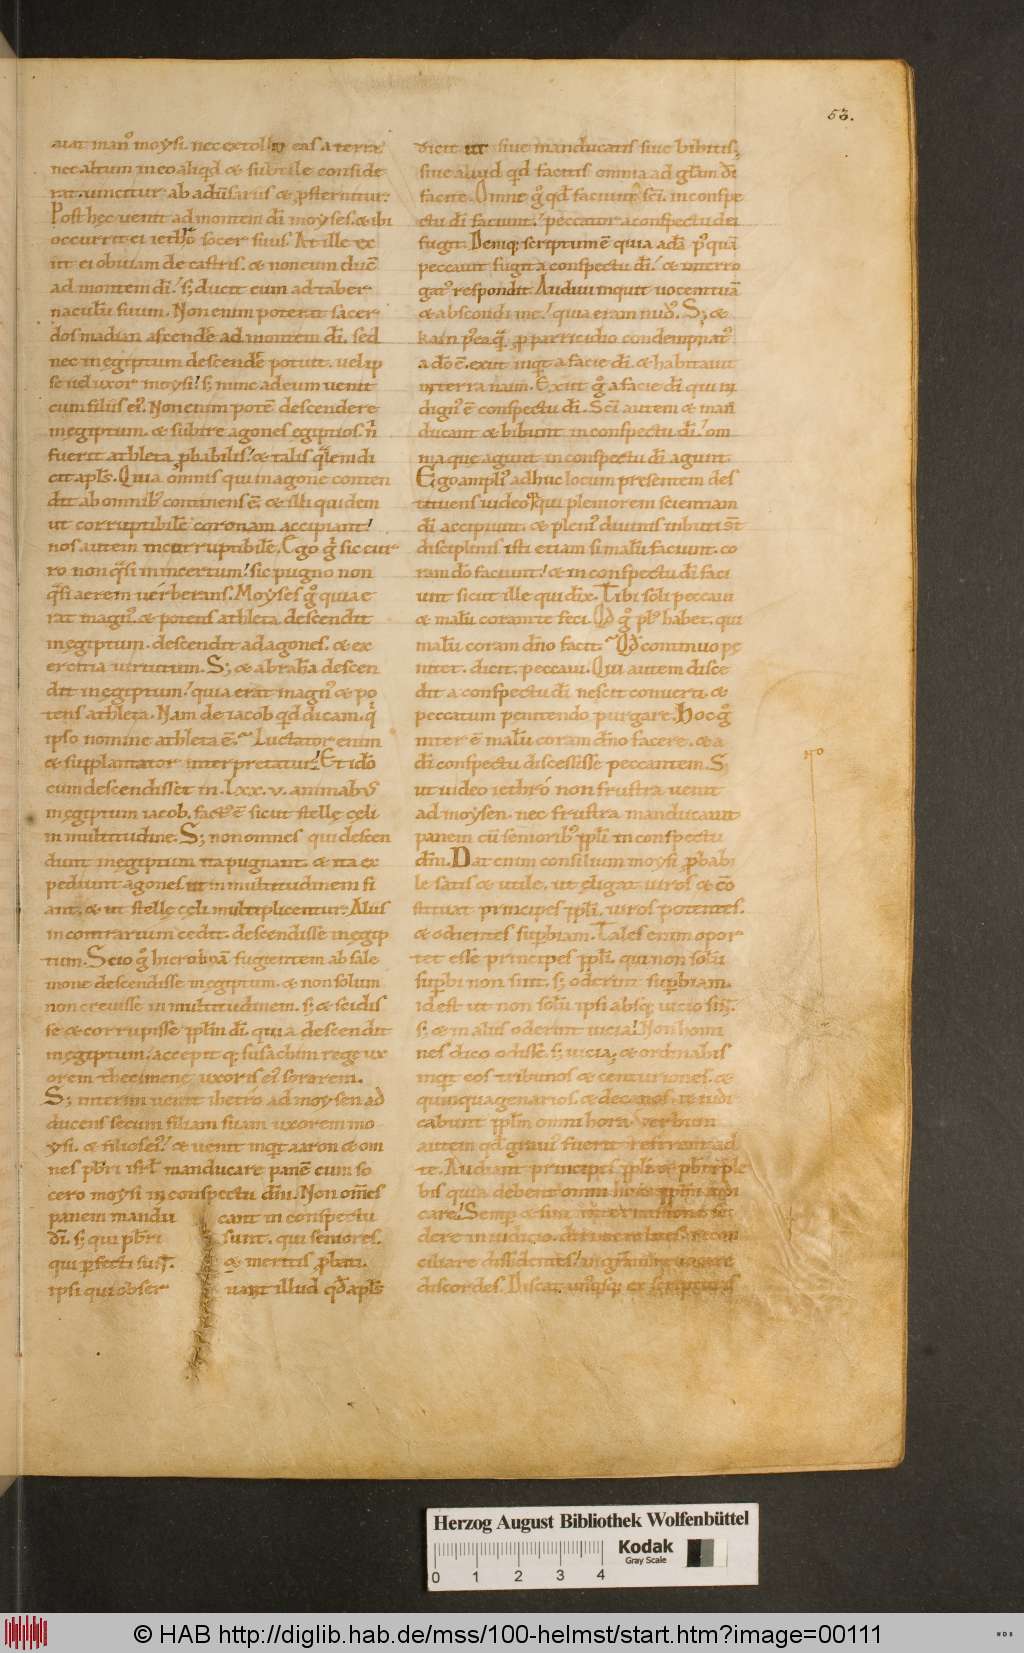 53.
uat man᷒ moysi. nec extollit eas a terra
nec altum in eo aliqd & subtile conside
rat. uincitur ab adūsariis & ꝓsternitur.
Post hęc uenit ad montem dī moyses. & ibi
occurrit ei iethro socer suus. At ille ex
iit ei obuiam de castris. & non eum duc̄
ad montem dī. s; ducit eum ad taber
naculū suum. Non enim poterat sacer
dos madian ascendere ad montem dī. sed
nec in egiptum descendere potuit. uel ip
se uel uxor moysi. s; nunc ad eum uenit
cum filiis ei᷒. Non enim poteē descendere
in ęgiptum. & subire agones egiptios. n̄
fuerit athleta ꝓbabilis. & talis qlem di
cit apls. Quia omnis qui in agone conten
dit ab omnib᷒ continens ē. & illi quidem
ut corruptibilē coronam accipiant.
nos autem incorruptibilē. Ego g͛ sic cur
ro non qsi in incertum. sic pugno non
qsi aerem uerberans. Moyses g͛ quia e
rat magn᷒. & potens athleta descendit
in ęgiptum. descendit ad agones. & ex
ercitia uirtutum. S; & abrahā descen
dit in ęgiptum. quia erat magn᷒ & po
tens athleta. Nam de iacob qd dicam. q
ipso nomine athleta ē. Luctator enim
& supplantator interpretatur. Et idō
cum descendisset in. lxx. v. animab᷒
in ęgiptum iacob. fact᷒ ē sicut stellę cęli
in multitudine. S; non omnes qui descen
dunt in ęgiptum ita pugnant. & ita ex
pediunt agones ut in multitudinem fi
ant. & ut stellę cęli multiplicentur. Aliis
in contrarium cedit. descendisse in ęgip
tum. Scio g͛ hieroboā fugientem ab salo
mone descendisse in ęgiptum. & non solum
non creuisse in multitudinem. s; & scidis
se & corrupisse pplm dī. quia descendit
in ęgiptum. accepit q; susachim rege ux
orem thecimene uxoris ei᷒ sororem.
S; interim uenit ihetro ad moysen ad
ducens secum filiam suam uxorem mo
ysi. & filios ei᷒. & uenit inqt aaron & om
nes pbri isrl manducare panē cum so
cero moysi in conspectu dm̄i. Non om̄es
panem mandu cant in conspectu
dī. s; qui pbri sunt. qui seniores.
qui perfecti sunt. & meritis ꝓbati.
ipsi qui obser uant illud qd apls
dicit ut siue manducatis siue bibitis.
siue aliud qd facitis omnia ad glam dī
facite. Omne g͛ qd faciunt sci. in conspe
ctu dī faciunt. peccator a conspectu dei
fugit. Deniq; scriptum ē quia adā p᷒quā
peccauit fugit a conspectu dī. & interro
gat᷒ respondit. Audiui inquit uocem tuā
& abscondi me. quia eram nud᷒. S; &
kain postea q̄ ꝓ parricidio condempnat᷒
a dō ē. exiit inqt a facie dī. & habitauit
in terra naim. Exiit g͛ a facie dī qui in
dign᷒ ē conspectu dī. Sci autem & man
ducant & bibunt in conspectu dī. om
nia que agunt in conspectu dī agunt.
Ego ampli᷒ adhuc locum presentem des
tituens uideo qr qui pleniorem scientiam
dī accipiunt. & pleni᷒ diuinis imbuti st
disciplinis isti etiam si malū faciunt. co
ram dō faciunt. & in conspectu dī faci
unt sicut ille qui dix. Tibi soli peccaui
& malū coram te feci. Qd g͛ pl᷒ habet. qui
malū coram dn̄o facit. Qd continuo pę
nitet. dicit. peccaui. Qui autem disce
dit a conspectu dī nescit conuerti. &
peccatum penitendo purgare. Hoc g͛
inter ē malū coram dn̄o facere. & a
dī conspectu discessisse peccantem. S;
ut uideo iethro non frustra uenit
ad moysen. nec frustra manducauit
panem cū seniorib᷒ ppli in conspectu
dm̄i. Dat enim consilium moysi ꝓbabi
le satis & utile. ut eligat uiros & cō
stituat principes ppli. uiros potentes.
& odientes supbiam. Tales enim opor
tet esse principes ppli. qui non solū
supbi non sint. s; oderint supbiam.
id est ut non solū ipsi absq; uicio sint.
s; & in aliis oderint uicia. Non homi
nes dico odisse. s; uicia. & ordinabis
inqt eos tribunos & centuriones. &
quinquagenarios. & decanos. & iudi
cabunt pplm omni hora. Verbum
autem qd graui᷒ fuerit referent ad
te. Audiant principes ppli & pbri ple
bis quia debent omni hora pplm iudi
care. Semp & sine intermissione sę
dere in iudicio. dirimere lites. recon
ciliare dissidentes. in gratiam reuocare
discordes. Discat unusq; ex scripturis
No
Herzog August Bibliothek Wolfenbüttel
0 1 2 3 4
Kodak
Gray Scale
© HAB http://diglib.hab.de/mss/100-helmst/start.htm?image=00111